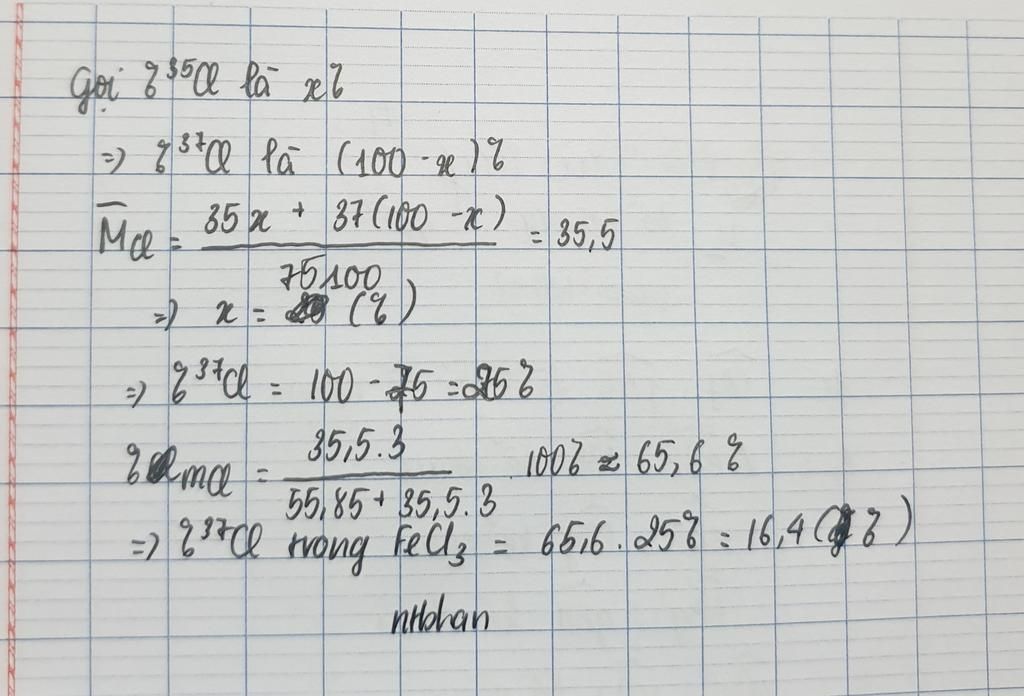 Gọi % ³⁵Cl là x%
=> % ³⁷Cl là (100 - x)%
M̅Cl = (35x + 37(100 - x)) / 100 = 35,5
=> x = 75 (%)
=> % ³⁷Cl = 100 - 75 = 25%
% mCl = (35,5.3) / (55,85 + 35,5.3) . 100% ≈ 65,6 %
=> % ³⁷Cl trong FeCl₃ = 65,6 . 25% = 16,4 (%)